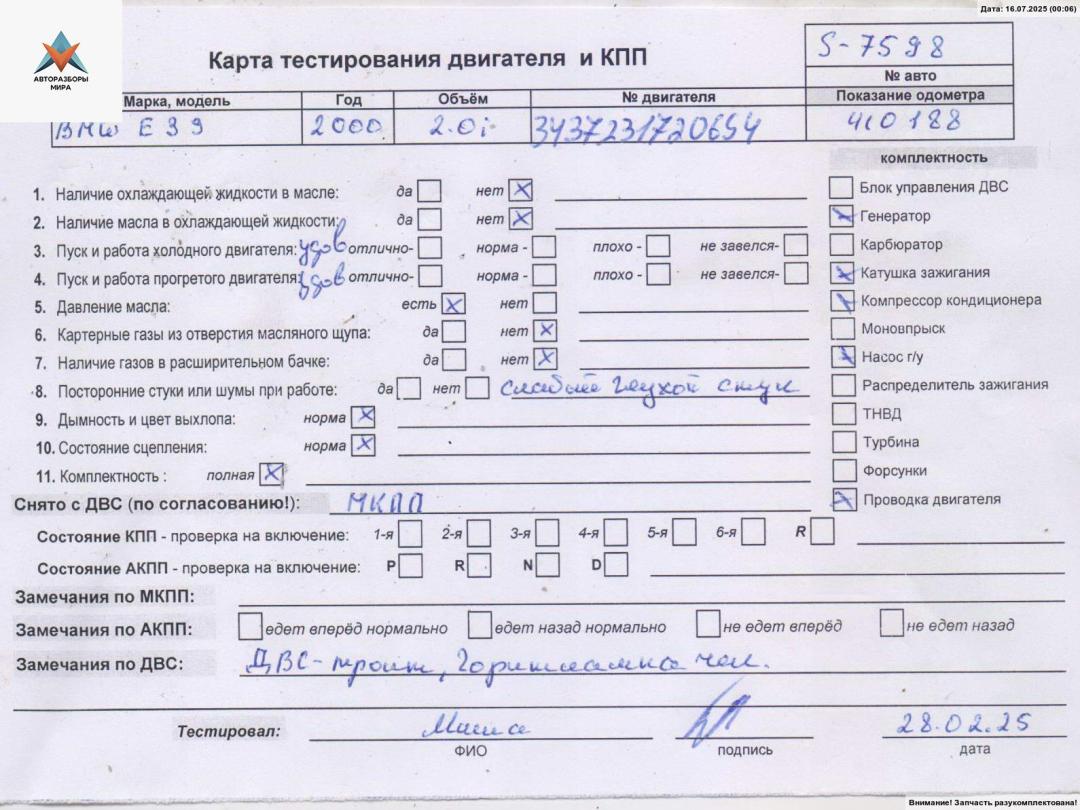 Дата: 16.07.2025 (00:06)
АВТОРАЗБОРЫ МИРА
Карта тестирования двигателя и КПП
S-7598
№ авто
Марка, модель Год Объём № двигателя Показание одометра
BMW E39 2000 2.0i 3437231720654 410188
комплектность
1. Наличие охлаждающей жидкости в масле: да нет X
Блок управления ДВС
2. Наличие масла в охлаждающей жидкости: да нет X
X Генератор
3. Пуск и работа холодного двигателя: удов отлично- норма - плохо - не завелся-
Карбюратор
4. Пуск и работа прогретого двигателя: удов отлично- норма - плохо - не завелся-
X Катушка зажигания
5. Давление масла: есть X нет
X Компрессор кондиционера
6. Картерные газы из отверстия масляного щупа: да нет X
Моновпрыск
7. Наличие газов в расширительном бачке: да нет X
X Насос г/у
8. Посторонние стуки или шумы при работе: да нет слабый глухой стук
Распределитель зажигания
9. Дымность и цвет выхлопа: норма X
ТНВД
10. Состояние сцепления: норма X
Турбина
11. Комплектность : полная X
Форсунки
Снято с ДВС (по согласованию!): МКПП
X Проводка двигателя
Состояние КПП - проверка на включение: 1-я 2-я 3-я 4-я 5-я 6-я R
Состояние АКПП - проверка на включение: P R N D
Замечания по МКПП:
Замечания по АКПП: едет вперёд нормально едет назад нормально не едет вперёд не едет назад
Замечания по ДВС: ДВС-троит, Горит лампа чек.
Тестировал: 28.02.25
ФИО подпись дата
Внимание! Запчасть разукомплектована!